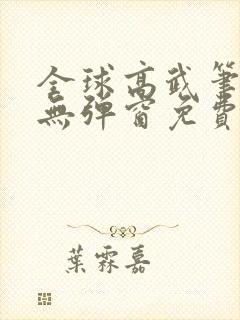 全球高武筆
無彈窗免費
葉霖嘉